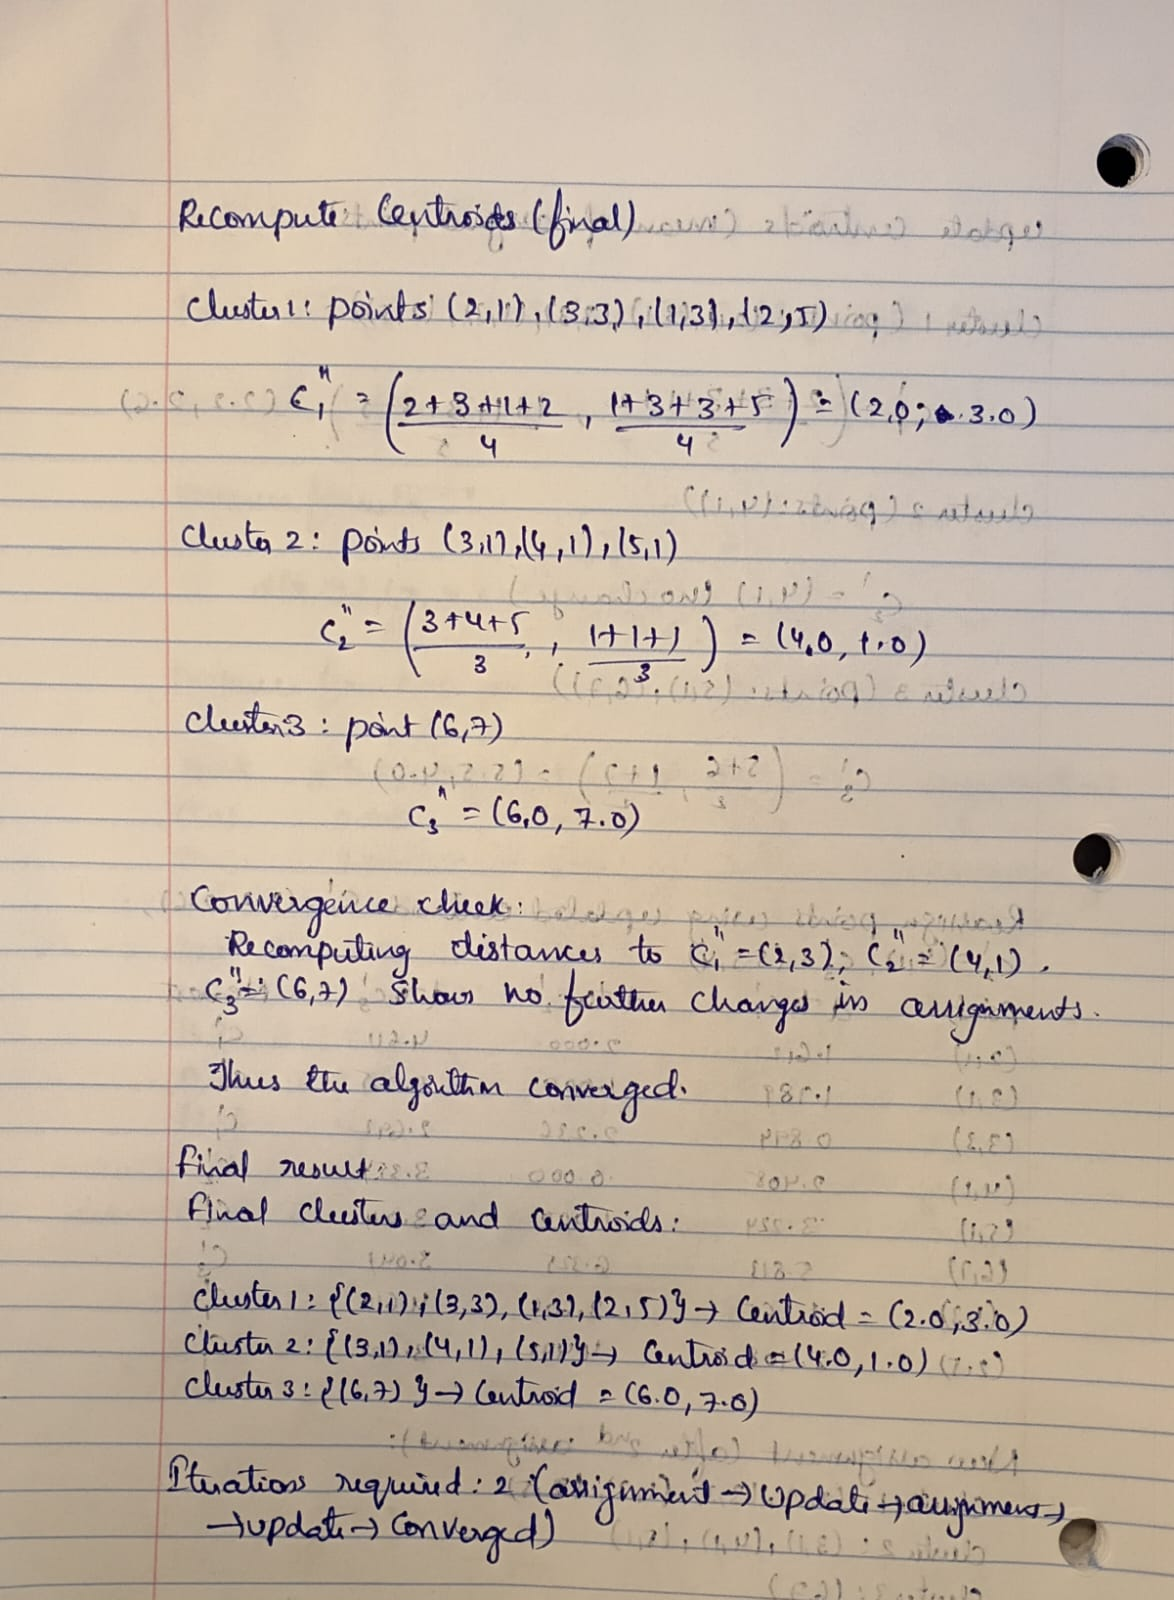 Recompute Centroids (final)
Cluster 1: points (2,1), (3,3), (1,3), (2,5)
C₁'' = ((2+3+1+2)/4 , (1+3+3+5)/4) = (2.0, 3.0)
Cluster 2: points (3,1), (4,1), (5,1)
C₂'' = ((3+4+5)/3 , (1+1+1)/3) = (4.0, 1.0)
Cluster 3: point (6,7)
C₃'' = (6.0, 7.0)
Convergence check:
Recomputing distances to C₁'' = (2,3), C₂'' = (4,1),
C₃'' = (6,7) shows no further changes in assignments.
Thus the algorithm converged.
Final result:
Final clusters and centroids:
Cluster 1: {(2,1), (3,3), (1,3), (2,5)} → Centroid = (2.0, 3.0)
Cluster 2: {(3,1), (4,1), (5,1)} → Centroid = (4.0, 1.0)
Cluster 3: {(6,7)} → Centroid = (6.0, 7.0)
Iterations required: 2 (assignment → Update → assignment →
→ update → Converged)